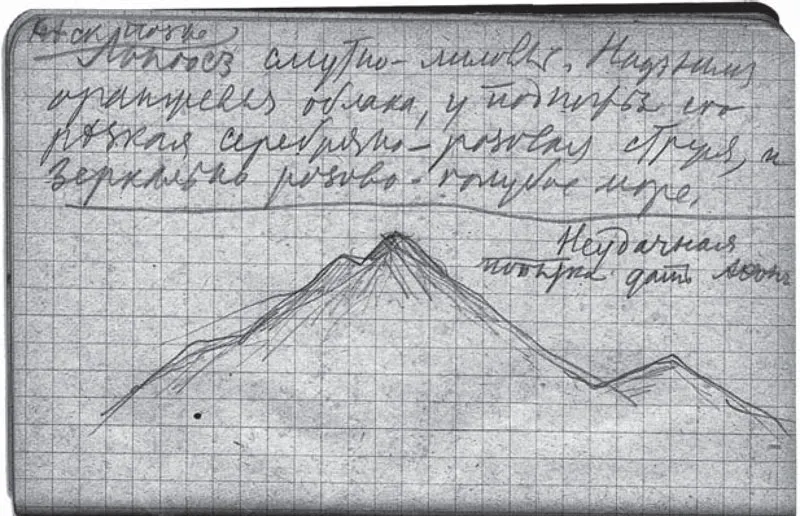 позже
смутно-лиловые. Над ними
оранжевыя облака, у подножья его
рѣзкая серебряно-розовая струя, и
зеркально розово-голубое море.
Неудачная
попытка дать Афон